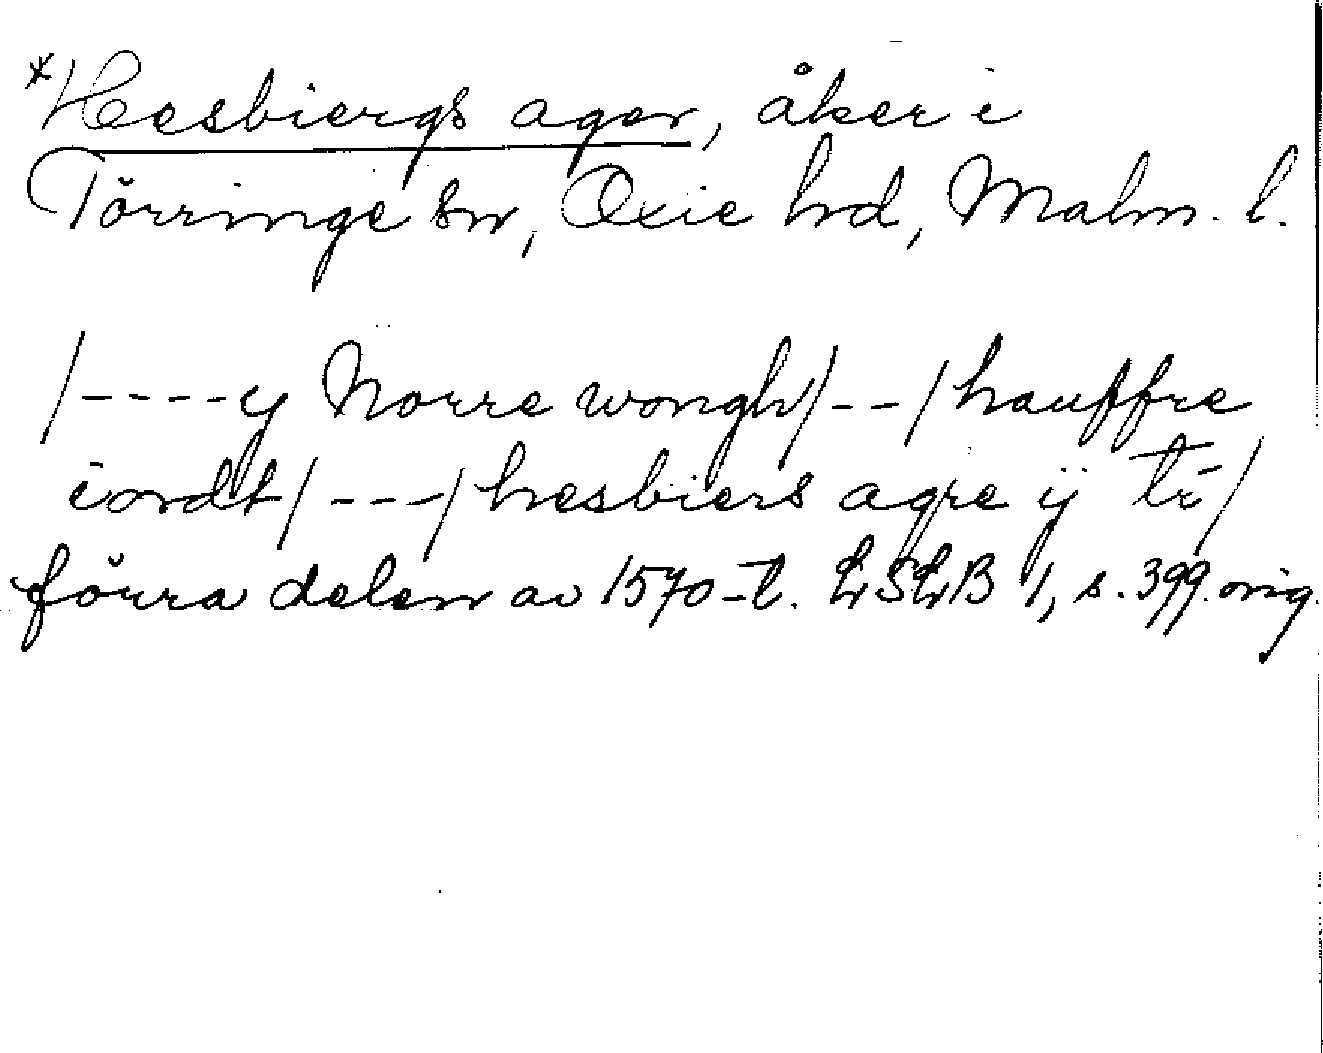 *Hesbiergs ager, åker i
Törringe sn, Oxie hd, Malm. l.
/----y Norre wongh/--/hauffre
iordt/---/hesbiers agre ÿ tr/
förra delen av 1570-t. LSLB 1, s. 399. orig.